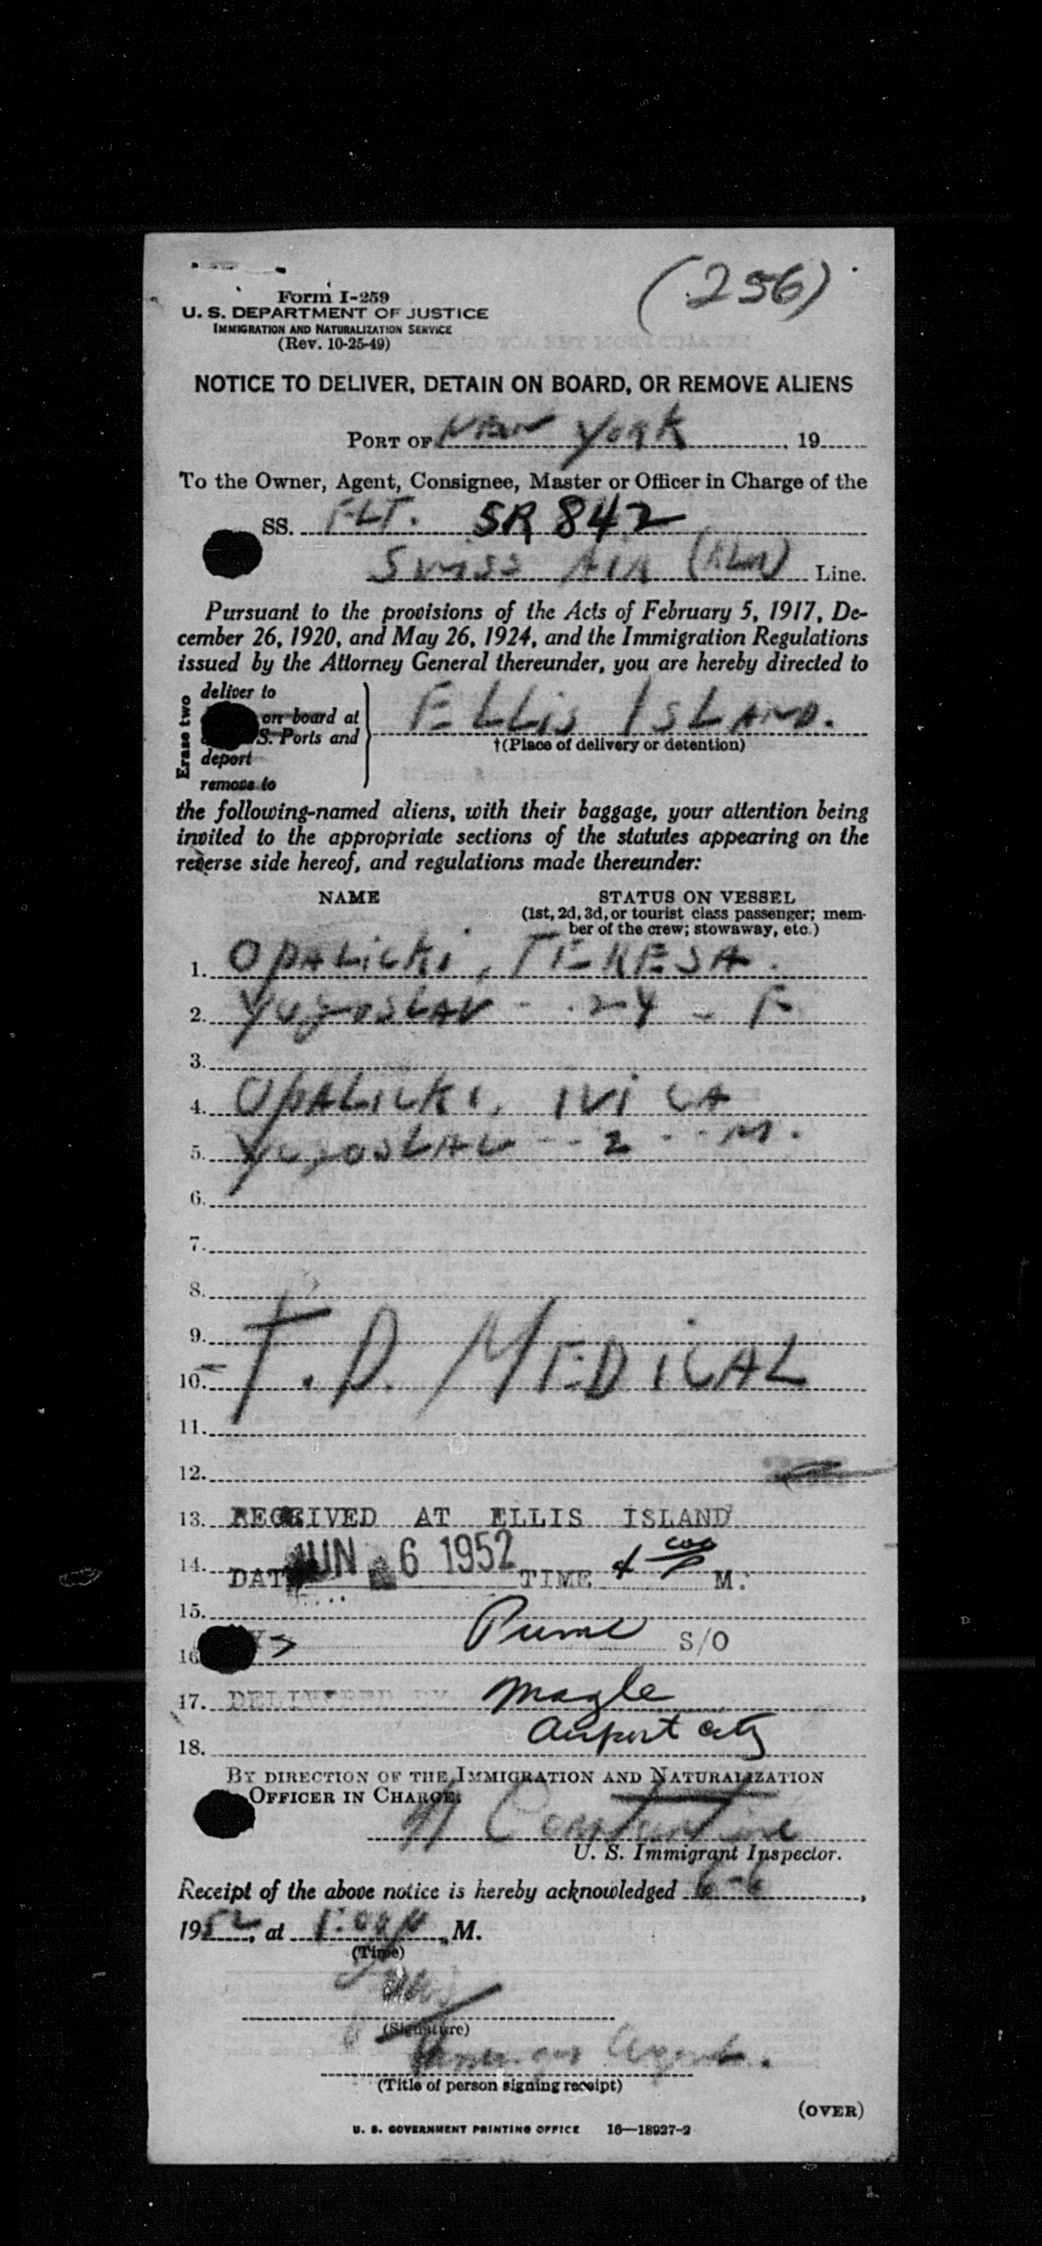 (256)
Form I-259
U. S. DEPARTMENT OF JUSTICE
IMMIGRATION AND NATURALIZATION SERVICE
(Rev. 10-25-49)
NOTICE TO DELIVER, DETAIN ON BOARD, OR REMOVE ALIENS
PORT OF NEW YORK, 19
To the Owner, Agent, Consignee, Master or Officer in Charge of the
SS. FLT. SR 842
Swiss Air (KLM) Line.
Pursuant to the provisions of the Acts of February 5, 1917, De-
cember 26, 1920, and May 26, 1924, and the Immigration Regulations
issued by the Attorney General thereunder, you are hereby directed to
Erase two
deliver to
on board at
S. Ports and
deport
remove to
ELLIS ISLAND.
†(Place of delivery or detention)
the following-named aliens, with their baggage, your attention being
invited to the appropriate sections of the statutes appearing on the
reverse side hereof, and regulations made thereunder:
NAME STATUS ON VESSEL
(1st, 2d, 3d, or tourist class passenger; mem-
ber of the crew; stowaway, etc.)
1. OPALICKI, TERESA.
2. YUGOSLAV - 24 - F
3.
4. OPALICKI, IVICA
5. YUGOSLAV - - 2 - - M.
6.
7.
8.
9.
10. T.D. MEDICAL
11.
12.
13. RECEIVED AT ELLIS ISLAND
14. DATE JUN 6 1952 TIME 4 00 M.
15.
16. S/O
17. DELIVERED BY Magle
18. Airport City
BY DIRECTION OF THE IMMIGRATION AND NATURALIZATION
OFFICER IN CHARGE:
Constantine
U. S. Immigrant Inspector.
Receipt of the above notice is hereby acknowledged 6-6,
1952, at M.
(Time)
(Signature)
Agent.
(Title of person signing receipt)
(OVER)
U. S. GOVERNMENT PRINTING OFFICE 16—18927-2